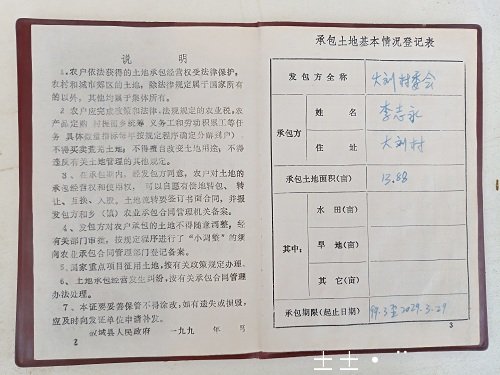 说 明
1.农户依法获得的土地承包经营权受法律保护,
农村和城市郊区的土地,除法律规定属于国家所有
的以外,其他均属于集体所有。
2 农户应完成政策和法律、法规规定的农业税、农
产品定购 村提留乡统筹 义务工和劳动积累工等任
务 具体数量指标每年按规定程序确定分解到户)
不得买卖荒芜土地,不得擅自改变土地用途,不得
违反有关土地管理的其他规定。
3、在承包期内,经发包方同意,农户对土地的
承包经营权和使用权,可以自愿有偿地转包、转
让、互换、入股。土地流转要签订书面合同,并报
发包方和乡(镇)农业承包合同管理机关备案。
4、发包方对农户承包的土地不得随意调整,经
有关部门审批,按规定程序进行了“小调整”的须
向农业承包合同管理部门登记备案。
5、国家重点项目征用土地,按有关政策规定办理。
6、土地承包经营发生纠纷,按有关承包合同管理
办法处理。
7、本证要妥善保管不得涂改,如有遗失或损毁,
应及时向发证单位申请补发。
城县人民政府 一九九 年 月
2
承包土地基本情况登记表
发包方全称 大刘村委会
承包方 姓 名 李志永
住 址 大刘村
承包土地面积(亩) 13.88
其中: 水 田(亩)
旱 地(亩)
其 它(亩)
承包期限(起止日期) 99.3至2029.3.29
3